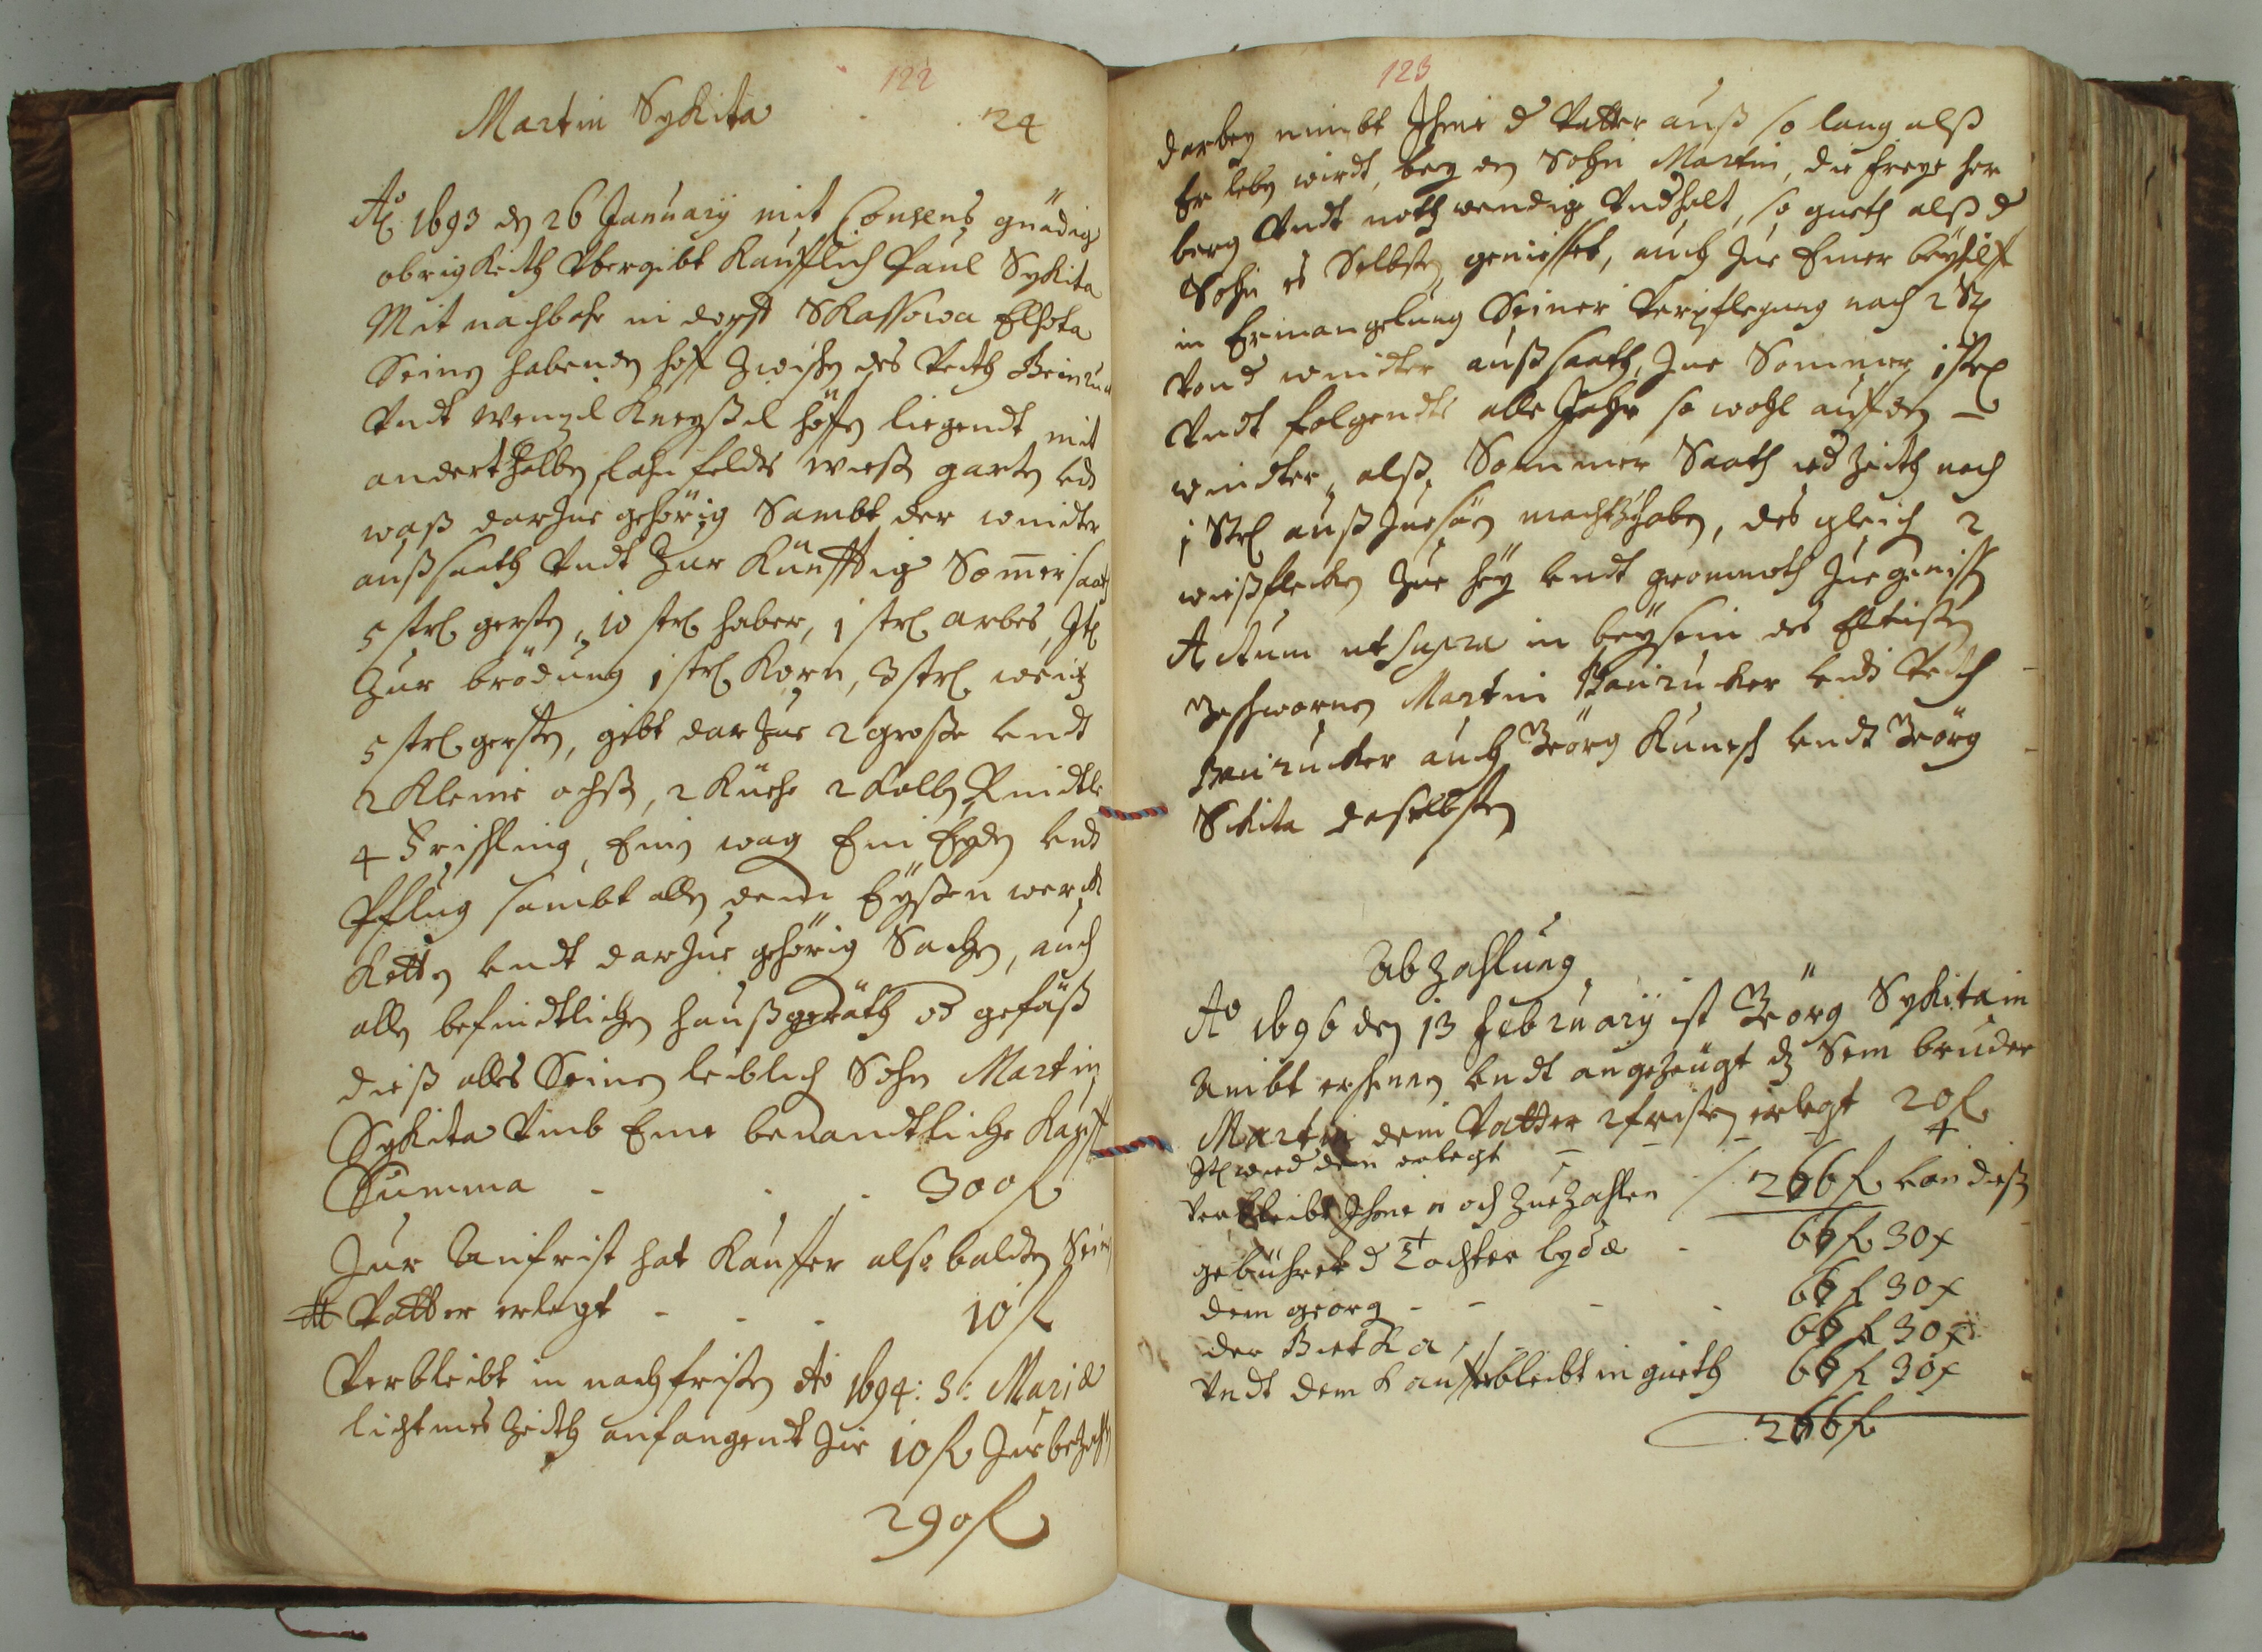 122
Martin Sykita
24
Ao. 1693 den 26 January mit Consens gnädig
obrigkeith Übergibt Kaufflich Paul Sykita
Mit nachbahr in dorff Skassowa Elhota
Seinen habenden hoff zwischen des Veith
Undt Wenzel höffen liegendt mit
anderthalben lahn feldts wiesen garten und
waß darzue gehörig Sambt der windter
außsaath Undt Zur Künfftig Sommer saath
5 strl gersten, 10 strl haber, 1 strl arbes, Itl
Zur brödung 1 strl Korn, 3 strl weitz
5 strl gersten, gibt darzue 2 große undt
2 Kleine ochsen, 2 Küehe 2 Kalben
4 Frischling, Einen wag Ein Eyden und
Pflug sambt allen dem Eyßen werck
Ketten undt darzue gehörig Sachen, auch
allen befindtlichen haußgeräth od gefäß
dieß alles Seinen leiblich Sohn Martin
Sykita Umb Eine benandtliche Kauff
Summa - - - 300 fl
Zur Anfrist hat Kauffer also balden Sein
Vatter erlegt - - - 10 fl
Verbleibt in nachfristen Ao 1694: S: Mariæ
lichtmes Zeith anfangendt Zue 10 fl Zue bezahlen
290 fl
123
darbey nimbt Ihme d Vatter auß so lang alß
Er leben wirdt, bey den Sohn Martin, die freye her
berg Undt nothwendige Undhalt, so gueth alß d
Sohn es Selbsten genießet, auch Zue Einer beyhilff
in Ermangelung Seiner Verpflegung nach 2 Stl
windter außsaath, Zue Sommer 1 strl
Undt folgendts alle Jahr so wohl auff den
windter, alß Sommer Saath jed Zeith nach
1 Strl außzuesäen macht zuhaben, des gleich 2
wießflecken Zue hey undt grommeth Zue genissen
Actum ut supra in beysein des Eltisten
Geschwornen Martin Bauzucker undt Veith
Bauzucker auch Geörg Kunesch undt Geörg
Sikita daselbsten
Abzahlung
Ao 1696 den 13 February ist Geörg Sykita in
Ambt erschinen undt angezeugt dz Sein bruder
Martin dem Vatter 2 fristen erlegt 20 fl
Itl wird dem erlegt - 4
Verbleibt Ihme noch zuezahlen 266 fl von diesen
gebühret d Tochter Lyda - 66 fl 30 x
dem georg - - - - 66 fl 30 x
der Bietka - 66 fl 30 x
Undt dem Kauffer bleibt in gueth 66 fl 30 x
266 fl